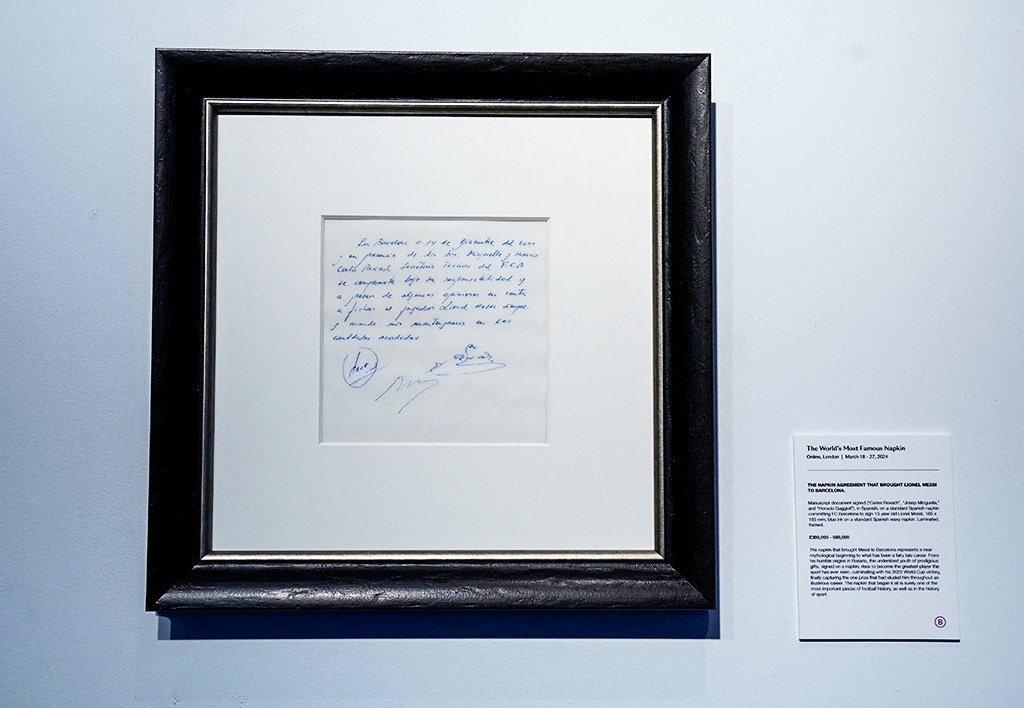 En Barcelona a 14 de diciembre del 2000
y en presencia de los Srs. Minguella y Horacio
Carles Rexach Secretario Tecnico del F.C.B
se compromete bajo su responsabilidad y
a pesar de algunas opiniones en contra
a fichar al jugador Lionel Messi siempre
y cuando nos mantengamos en las
cantidades acordadas
The World's Most Famous Napkin
Online, London | March 18 - 27, 2024
THE NAPKIN AGREEMENT THAT BROUGHT LIONEL MESSI
TO BARCELONA.
Manuscript document signed ("Carles Rexach", "Josep Minguella,"
and "Horacio Gaggioli"), in Spanish, on a standard Spanish napkin
committing FC Barcelona to sign 13 year old Lionel Messi, 165 x
165 mm, blue ink on a standard Spanish waxy napkin. Laminated,
framed.
£300,000 - 500,000
The napkin that brought Messi to Barcelona represents a near
mythological beginning to what has been a fairy tale career. From
his humble origins in Rosario, the undersized youth of prodigious
gifts, signed on a napkin, rises to become the greatest player the
sport has ever seen, culminating with his 2022 World Cup victory,
finally capturing the one prize that had eluded him throughout an
illustrious career. The napkin that began it all is surely one of the
most important pieces of football history, as well as in the history
of sport.
B